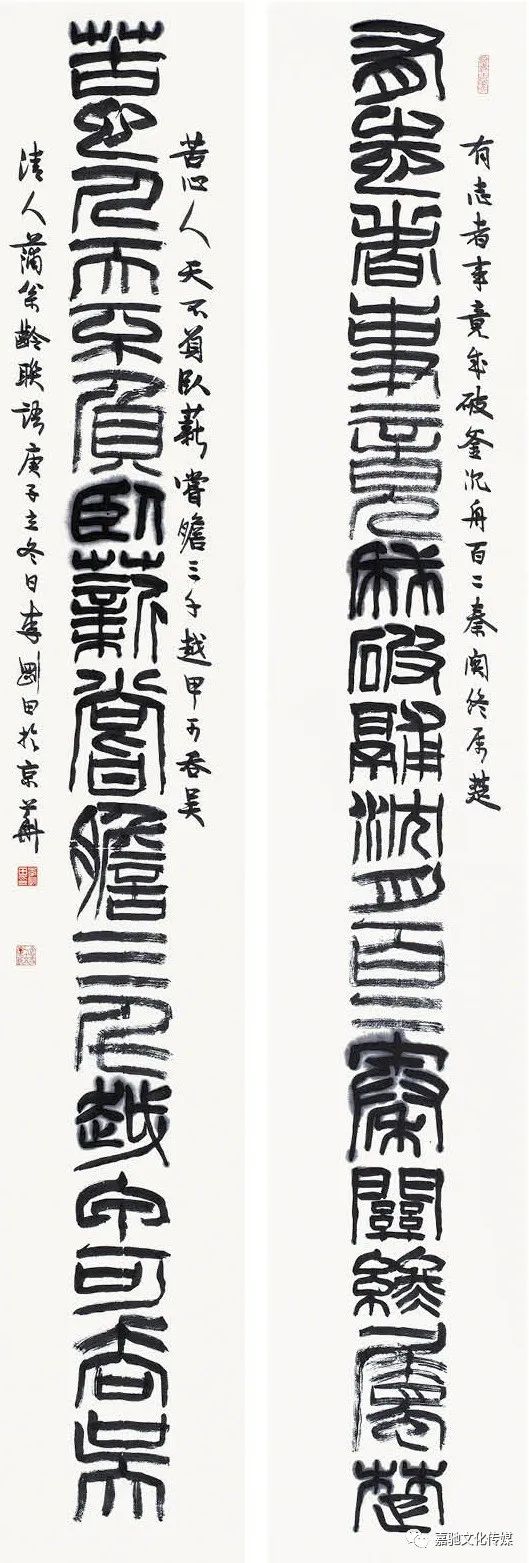 有志者事竟成破釜沉舟百二秦関终属楚
有志者事竟成破鬴沈舟百二秦關終屬楚
苦心人天不負臥薪嘗膽三千越甲可吞吴
苦心人天不負臥薪嘗膽三千越甲可吞吳
清人蒲松齡联語庚子立冬日李剛田於京華
嘉驰文化传媒